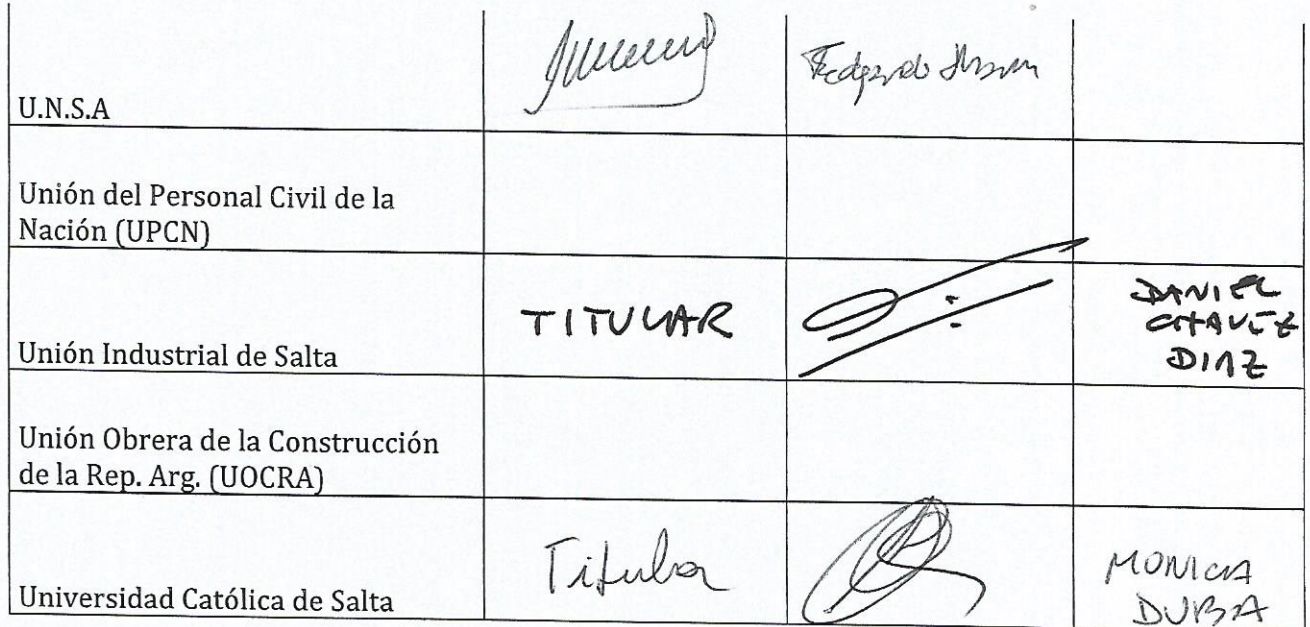 U.N.S.A
Unión del Personal Civil de la
Nación (UPCN)
Unión Industrial de Salta
TITULAR
DANIEL
CHAVEZ
DIAZ
Unión Obrera de la Construcción
de la Rep. Arg. (UOCRA)
Universidad Católica de Salta
Titular
MONICA
DUBA